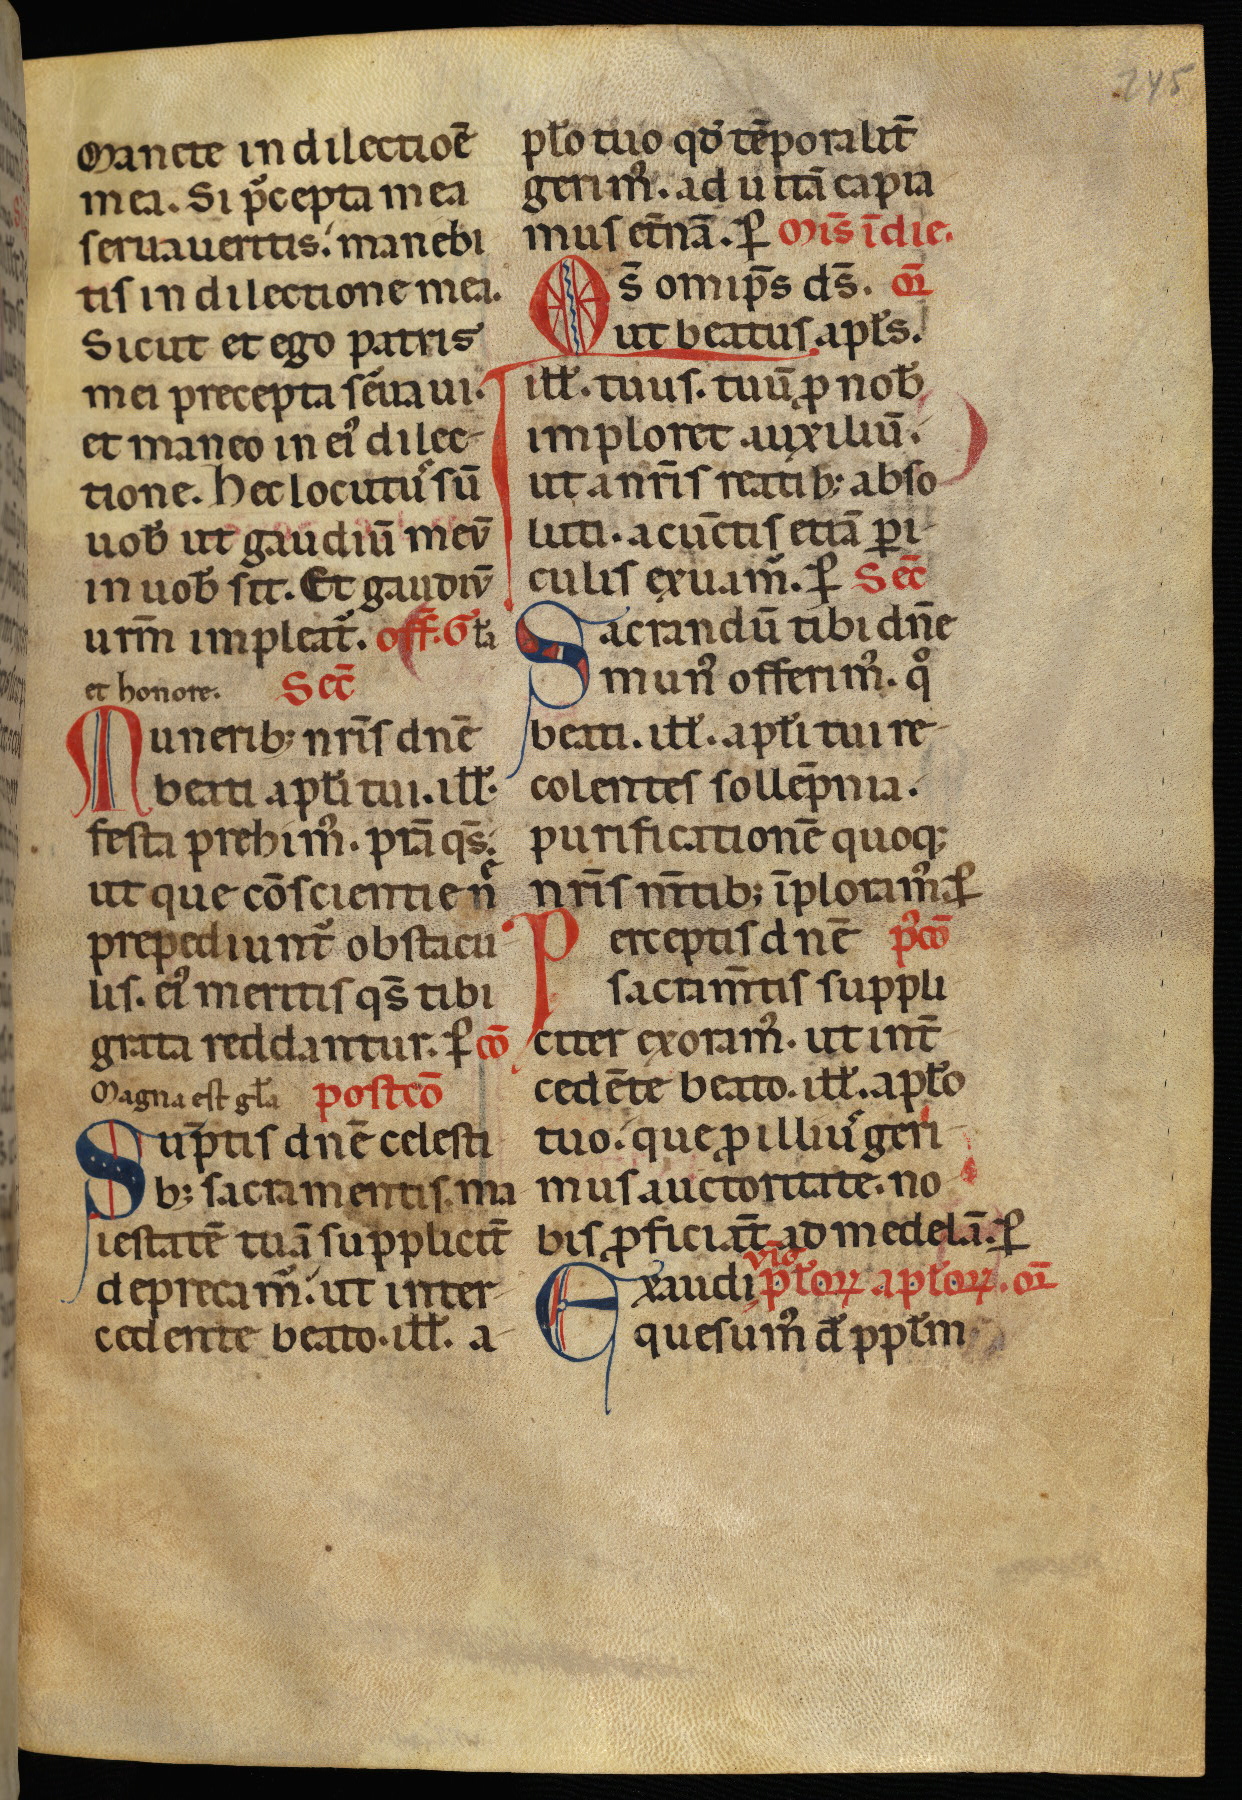 245
Manete in dilectioē
mea. Si p̄cepta mea
seruaueritis: manebi
tis in dilectione mea.
Sicut et ego patris
mei precepta sēuaui.
et maneo in ei᷒ dilec-
tione. Hec locutus sū
uob̄ ut gaudiū meū
in uob̄ sit. Et gaudiū
urm̄ impleat᷑. off̄. Gła
et honore. Sec̄
Munerib; nr̄is dnē
beati apłi tui. iłł.
festa prebim᷒. prā qs̄.
ut que cōscientie nē
prepediunt᷑ obstacu
lis. ei᷒ meritis qs̄ tibi
grata reddantur. p̄ cō
Magna est gła postcō
Sūptis dnē celesti
b; sacramentis. ma
iestatē tuā supplicit̄
deprecam᷒. ut inter-
cedente beato. iłł. a-
pło tuo qd̄ tēporalit̄
gerim᷒. ad uitā capia
mus et̄nā. p̄ Mis̄ ī die.
Os̄ omip̄s ds̄. or̄
ut beatus apłs.
iłł. tuus. tuū pro nob̄
imploret auxiliū.
ut a nr̄is reatib; abso
luti. a cūctis etiā pi-
culis exuam᷒. p̄ Sec̄
Sacrandū tibi dnē
mun᷒ offerim᷒. qͦ
beati. iłł. apłi tui re-
colentes sollēpnia.
purificationē quoq;
nr̄is mt̄ib; īploram᷒ p̄
Perceptis dnē p᷒cō
sacram̄tis suppli
citer exoram᷒. ut int̄
cedēte beato. iłł. apło
tuo. que pro illius geri
mus auctoritate. no
bis proficiāt ad medelā. p̄
viḡ
Exaudi pł̄oꝝ apłoꝝ. or̄
quesum᷒ ds̄ ppłm